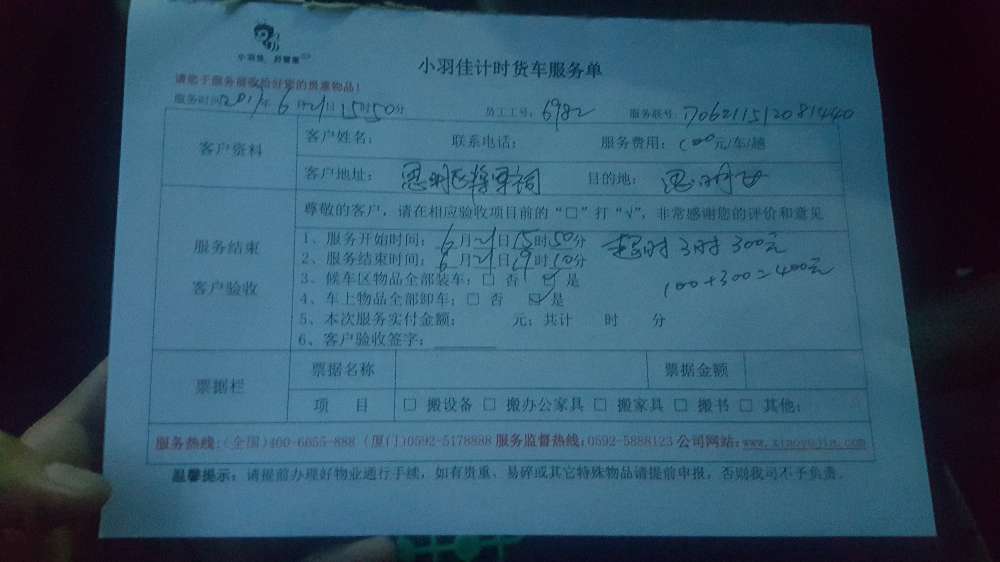 小羽佳 好管家
小羽佳计时货车服务单
请您于服务前收拾好您的贵重物品！
服务时间 2017年 6月21日15时50分 员工工号：6982 服务账号：D062115120814440
客户资料
客户姓名： 联系电话： 服务费用：100元/车/趟
客户地址：思明区将军祠 目的地：思明区
服务结束
客户验收
尊敬的客户，请在相应验收项目前的“□”打“√”，非常感谢您的评价和意见
1、服务开始时间：6月21日15时50分 超时3时300元
2、服务结束时间：6月21日19时10分
3、候车区物品全部装车：□ 否 ☑ 是 100+300=400元
4、车上物品全部卸车：□ 否 ☑ 是
5、本次服务实付金额： 元；共计 时 分
6、客户验收签字：
票据栏
票据名称 票据金额
项 目 □ 搬设备 □ 搬办公家具 □ 搬家具 □ 搬书 □ 其他：
服务热线：(全国)400-6855-888 (厦门)0592-5178888 服务监督热线：0592-5888123 公司网站：www.xiaoyujia.com
温馨提示：请提前办理好物业通行手续，如有贵重、易碎或其它特殊物品请提前申报，否则我司不予负责.